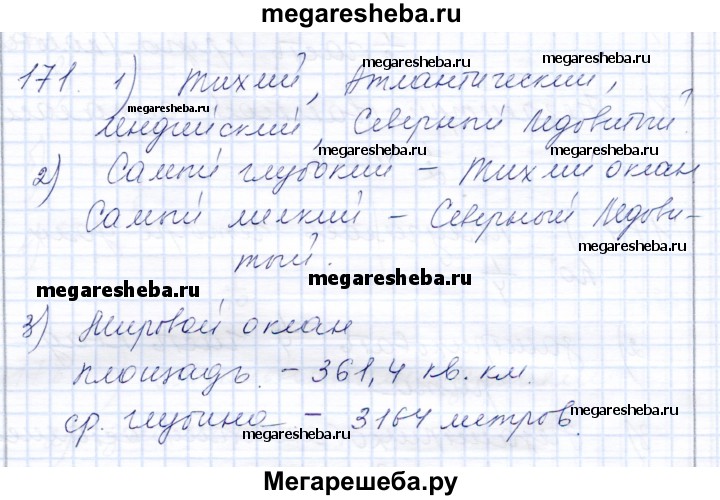 megaresheba.ru
171. 1) Тихий, Атлантический,
megaresheba.ru megaresheba.ru
Индийский, Северный Ледовитый.
megaresheba.ru
2) Самый глубокий – Тихий океан
Самый мелкий – Северный Ледови-
megaresheba.ru
тый.
megaresheba.ru
megaresheba.ru
3) Мировой океан
megaresheba.ru
площадь – 361,4 кв. км.
megaresheba.ru
ср. глубина – 3164 метров.
megaresheba.ru
Мегарешеба.ру